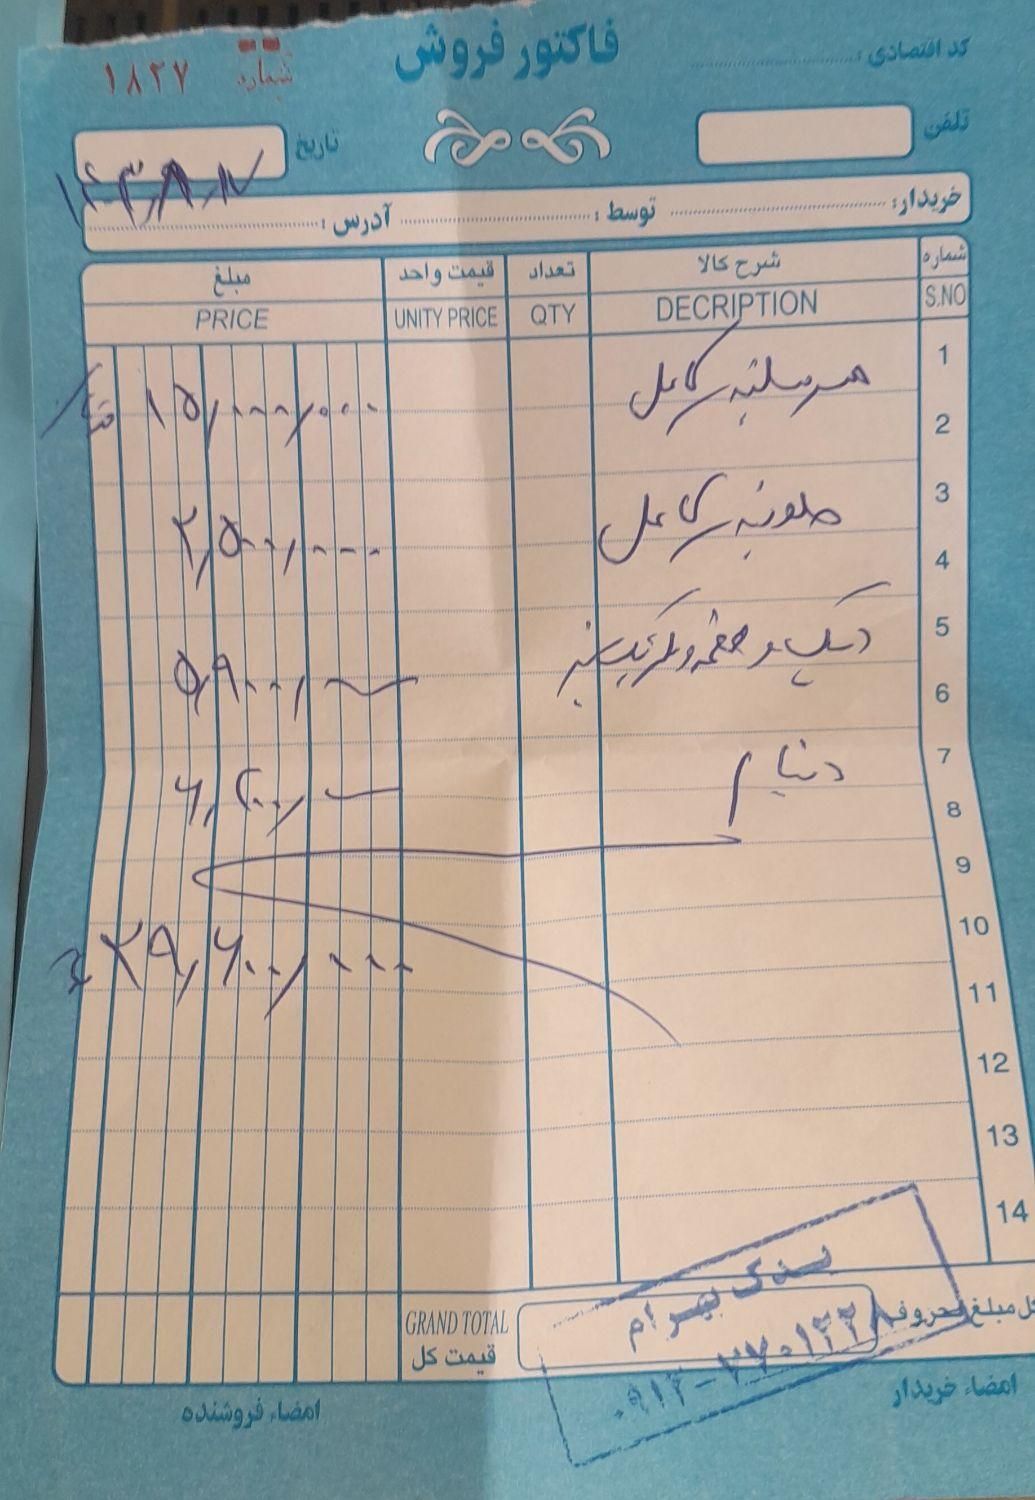 فاکتور فروش
کد اقتصادی :
شماره ۱۸۲۷
تلفن
تاریخ ۱۴۰۳,۸,۱۷
خریدار: توسط : آدرس :
شماره شرح کالا تعداد قیمت واحد مبلغ
S.NO DECRIPTION QTY UNITY PRICE PRICE
1
سرسیلندر کامل ۱۵,۰۰۰,۰۰۰
2
3
کامل ۲,۵۰۰,۰۰۰
4
5
دیسک و صفحه و بلبرینگ ۵,۹۰۰,
6
7
دینام ۶,۲۰۰,
8
9
10
۲۹,۶۰۰,۰۰۰
11
12
13
14
یدک بهرام
۰۹۱۲-۷۷۰۱۲۲۸
کل مبلغ بحروف
GRAND TOTAL
قیمت کل
امضاء خریدار
امضاء فروشنده